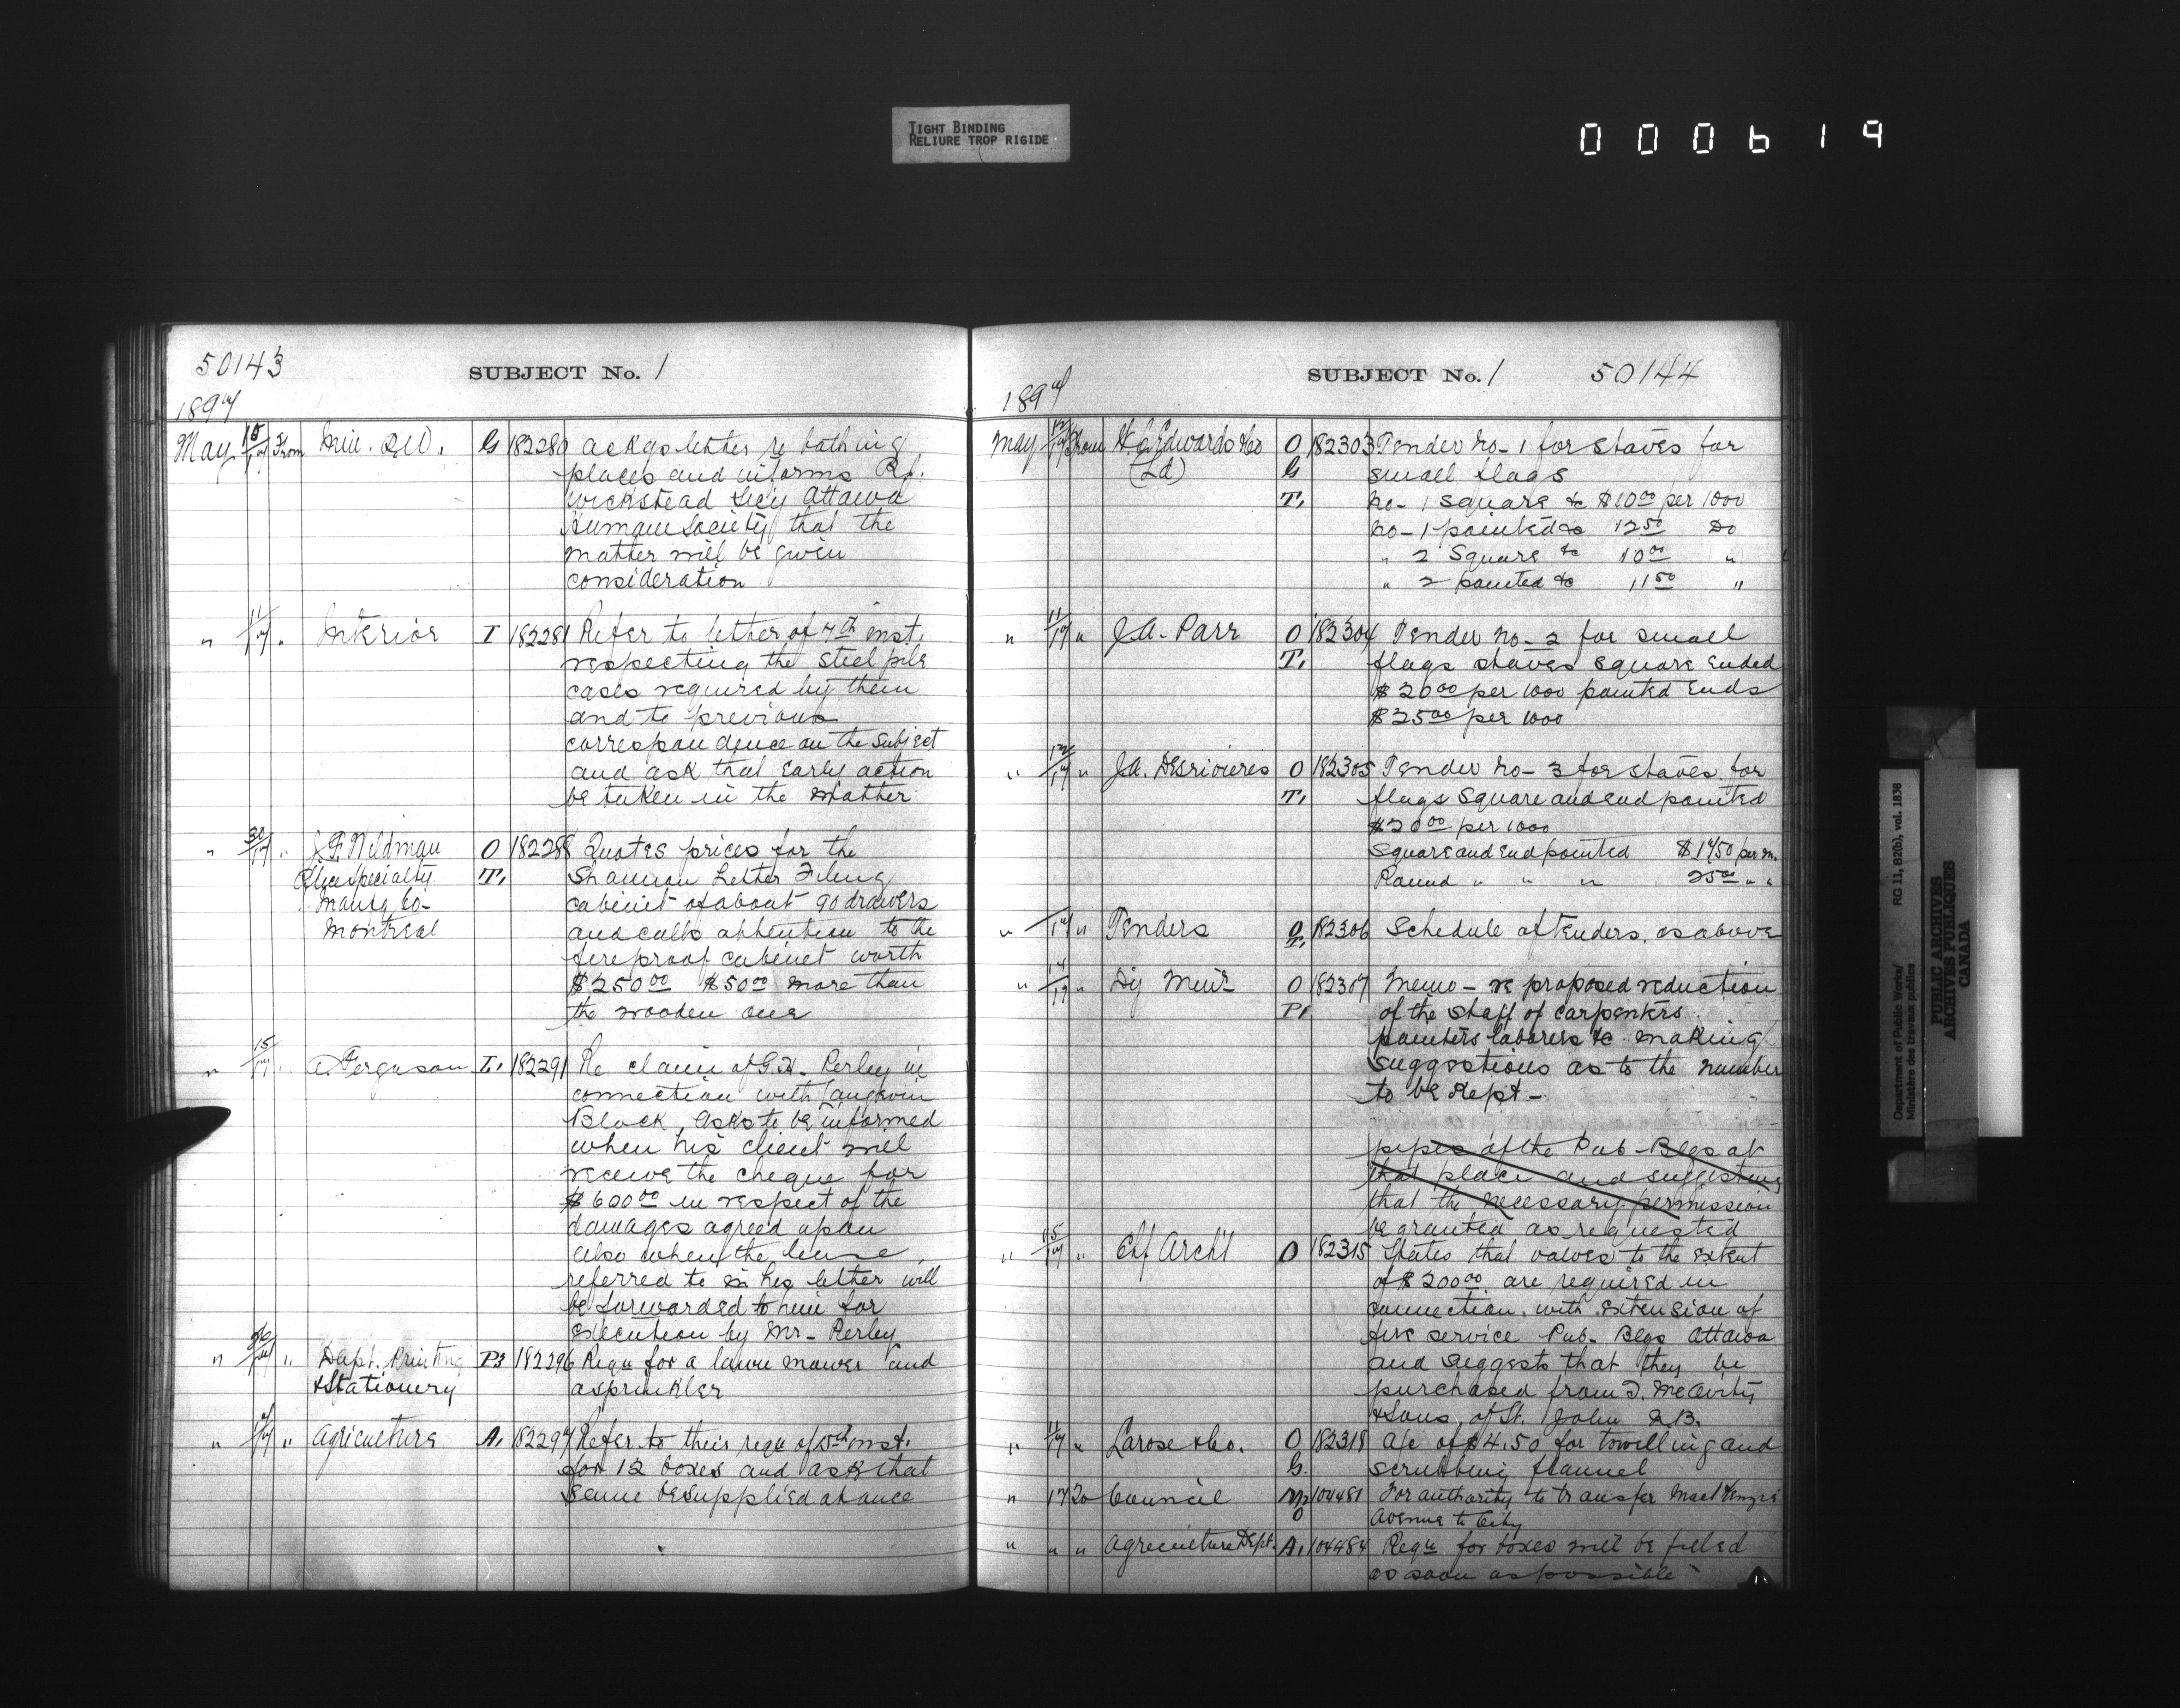 TIGHT BINDING
RELIURE TROP RIGIDE
000619
50143
SUBJECT No. 1
1897
May 15/17 From Min. P.W. G 182280 Ackgs letter re bathing
places and informs R.J.
Wickstead Secy Ottawa
Humane Society that the
matter will be given
consideration
" 11/17 " Interior I 182281 Refer to letter of 7th inst.
respecting the steel file
cases required by them
and to previous
correspondence on the subject
and ask that early action
be taken in the matter
" /17 " J.F. Wildman O 182288 Quotes prices for the
Office Specialty T. Shannon Letter Filing
Manfg Co- cabinet of about 90 drawers
Montreal and calls attention to the
fireproof cabinet worth
$250.00 $50.00 more than
the wooden one
" 15/17 " A. Ferguson L. 182291 Re claim of G.H. Perley in
connection with Langevin
Block, asks to be informed
when his client will
receive the cheque for
$600.00 in respect of the
damages agreed upon
also when the lease
referred to in his letter will
be forwarded to him for
execution by Mr- Perley
" " Dept. Printing P3 182296 Requ for a lawn mower and
&Stationery a sprinkler
" " Agriculture A. 182297 Refer to their requ of 15th inst.
for 12 boxes and ask that
same be supplied at once
SUBJECT No. 1
50144
1897
May 12/17 From W.C. Edwards &Co O 182303 Tender No- 1 for staves for
(Ld) G small flags
T. No- 1 square &c $10.00 per 1000
No- 1 pointed &c 12.50 Do
" 2 Square &c 10.00 "
" 2 pointed &c 11.50 "
" 11/17 " J.A. Parr O 182304 Tender No- 2 for small
T. flags staves square ended
$20.00 per 1000 pointed ends
$25.00 per 1000
" 12/17 " J.A. Desrivieres O 182305 Tender No- 3 for staves for
T. flags Square and end pointed
$20.00 per 1000
Square and end pointed $17.50 per m.
Round " " " 25.00 " "
" /17 " Tenders O T. 182306 Schedule of tenders, as above
" 14/17 " Dy Minr O 182307 Memo - re proposed reduction
P1 of the staff of carpenters
painters laborers &c making
suggestions as to the number
to be kept -
pipes of the Pub- Blgs at
that place and suggesting
that the necessary permission
be granted as requested
" 15/17 " Chf Archt O 182315 States that valves to the extent
of $200.00 are required in
connection with extension of
fire service Pub- Blgs Ottawa
and suggests that they be
purchased from T. McAvity
&Sons, of St. John N.B.
" 11/17 " Larose &Co. O 182318 A/c of $4.50 for towelling and
G. scrubbing flannel
" 17 To Council O 104481 For authority to transfer MacKenzie
Avenue to City
" " " Agriculture Dept. A. 104484 Requ for boxes will be filled
as soon as possible
Department of Public Works/ RG 11, B2(b), vol. 1838
Ministère des travaux publics
PUBLIC ARCHIVES
ARCHIVES PUBLIQUES
CANADA